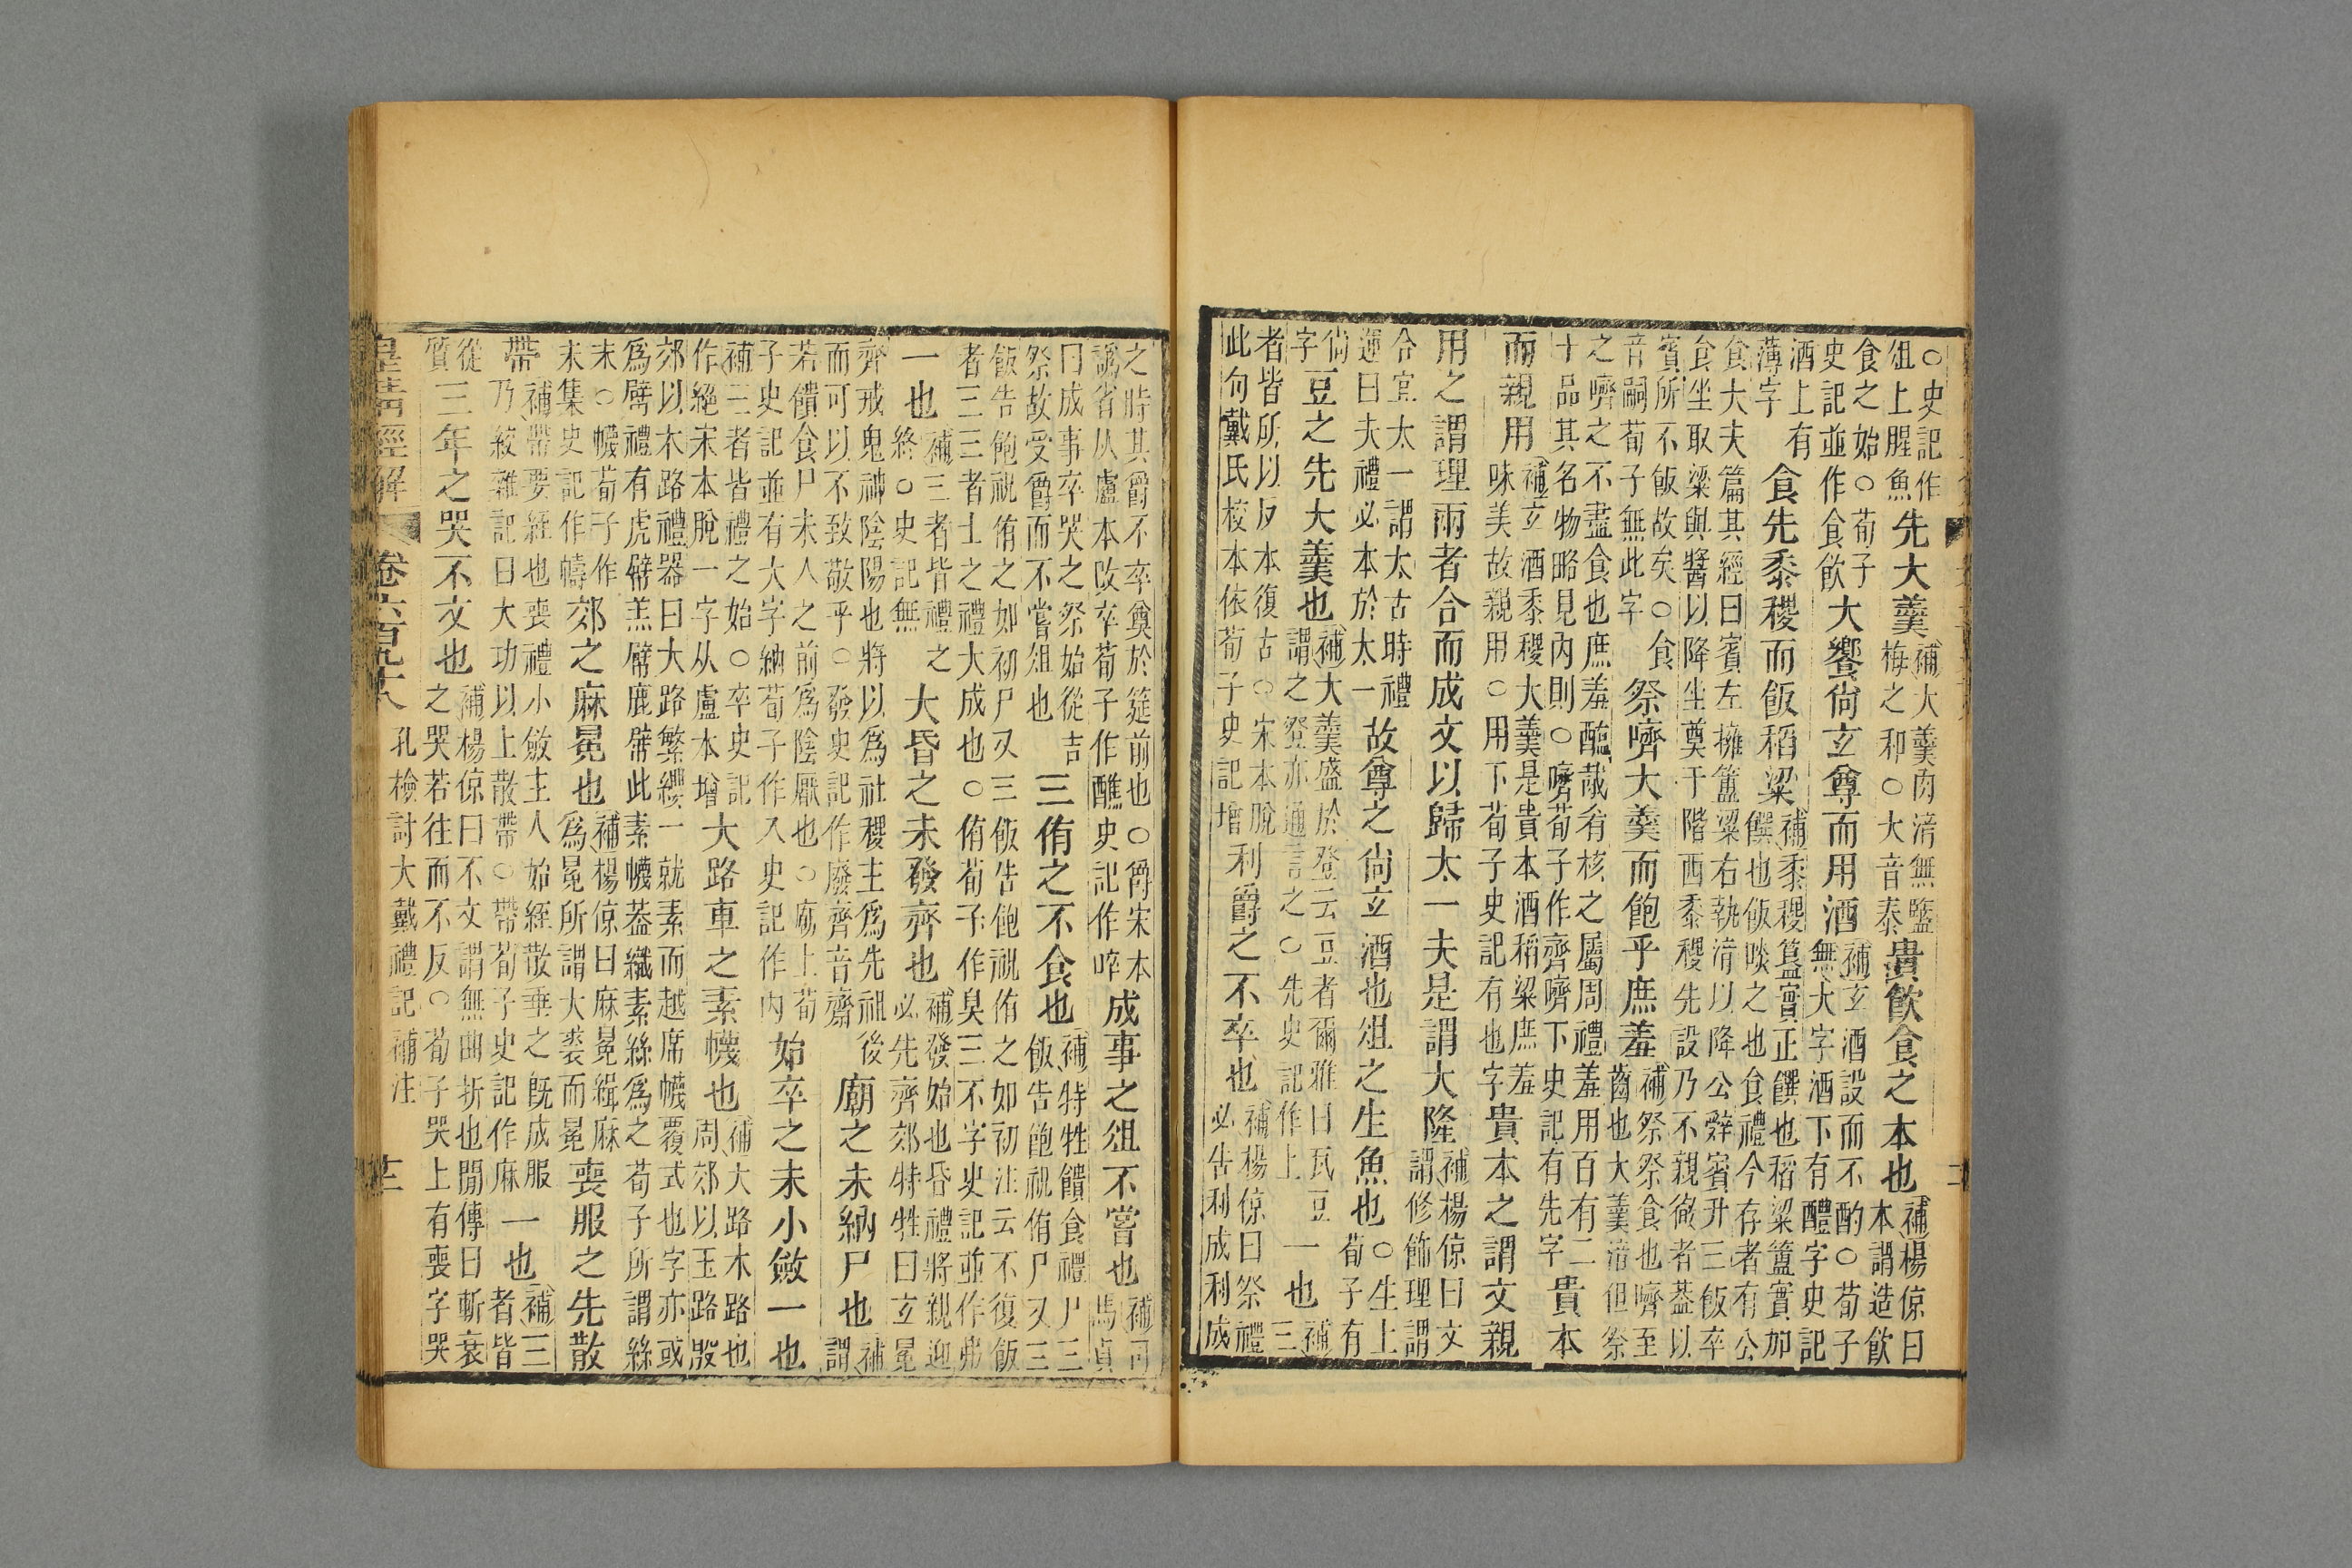 ○史記作俎上腥魚先大羹補大羹肉湆無鹽梅之和○大音泰貴飲食之本也補楊倞曰本謂造飲
食之始○荀子史記並作食飲大饗尚玄尊而用酒補玄酒設而不酌○荀子無大字酒下有醴字史記
酒上有薄字食先黍稷而飯稻粱補黍稷簋實正饌也稻粱簠實加饌也飯啖之也食禮今存者有公
食大夫篇其經曰賓左擁簠粱右執湆以降公辭賓升三飯卒食坐取粱與醬以降坐奠于階西黍稷先設乃不親徹者葢以
賓所不飯故矣○食音嗣荀子無此字祭嚌大羹而飽乎庶羞補祭祭食也嚌至齒也大羹湆但祭
之嚌之不盡食也庶羞醢胾肴核之屬周禮羞用百有二十品其名物略見內則○嚌荀子作齊嚌下史記有先字貴本
而親用補玄酒黍稷大羹是貴本酒稻粱庶羞味美故親用○用下荀子史記有也字貴本之謂文親
用之謂理兩者合而成文以歸太一夫是謂大隆補楊倞曰文謂修飾理謂
合宜太一謂太古時禮運曰夫禮必本於太一故尊之尚玄酒也俎之生魚也○生上荀子有
尚字豆之先大羹也補大羹盛於登云豆者爾雅曰瓦豆謂之登亦通言之○先史記作上一也補三
者皆所以反本復古○宋本脫此句戴氏校本依荀子史記增利爵之不卒也補楊倞曰祭禮必告利成利成
之時其爵不卒奠於筵前也○爵宋本譌省从盧本改卒荀子作醮史記作啐成事之俎不嘗也補司馬貞
曰成事卒哭之祭始從吉祭故受爵而不嘗俎也三侑之不食也補特牲饋食禮尸三飯告飽祝侑尸又三
飯告飽祝侑之如初尸又三飯告飽祝侑之如初注云不復飯者三三者士之禮大成也○侑荀子作臭三不字史記並作弗
一也補三者皆禮之終○史記無大昏之未發齊也補發始也昏禮將親迎必先齊郊特牲曰玄冕
齊戒鬼神陰陽也將以爲社稷主爲先祖後而可以不致敬乎○發史記作廢齊音齋廟之未納尸也補謂
若饋食尸未入之前爲陰厭也○廟上荀子史記並有大字納荀子作入史記作內始卒之未小斂一也
補三者皆禮之始○卒史記作絕宋本脫一字从盧本增大路車之素幭也補大路木路也周郊以玉路殷
郊以木路禮器曰大路繁纓一就素而越席幭覆式也字亦或爲幦禮有虎幦羔幦鹿幦此素幭葢織素絲爲之荀子所謂絲
末○幭荀子作末集史記作幬郊之麻冕也補楊倞曰麻冕緝麻爲冕所謂大裘而冕喪服之先散
帶補帶要絰也喪禮小斂主人始絰散垂之既成服乃絞雜記曰大功以上散帶○帶荀子史記作麻一也補三者皆
從質三年之哭不文也補楊倞曰不文謂無曲折也閒傳曰斬衰之哭若往而不反○荀子哭上有喪字哭
皇清經解 卷六百九十八 孔檢討大戴禮記補注